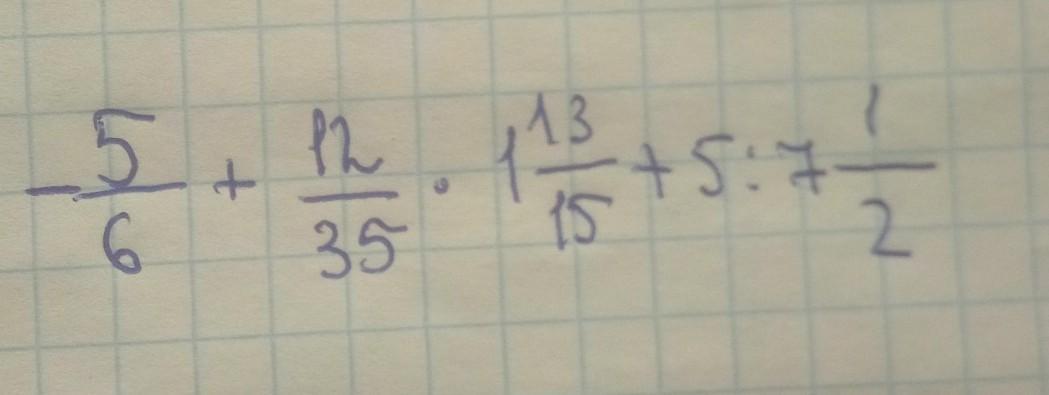 -5/6 + 12/35 · 1 13/15 + 5 : 7 1/2